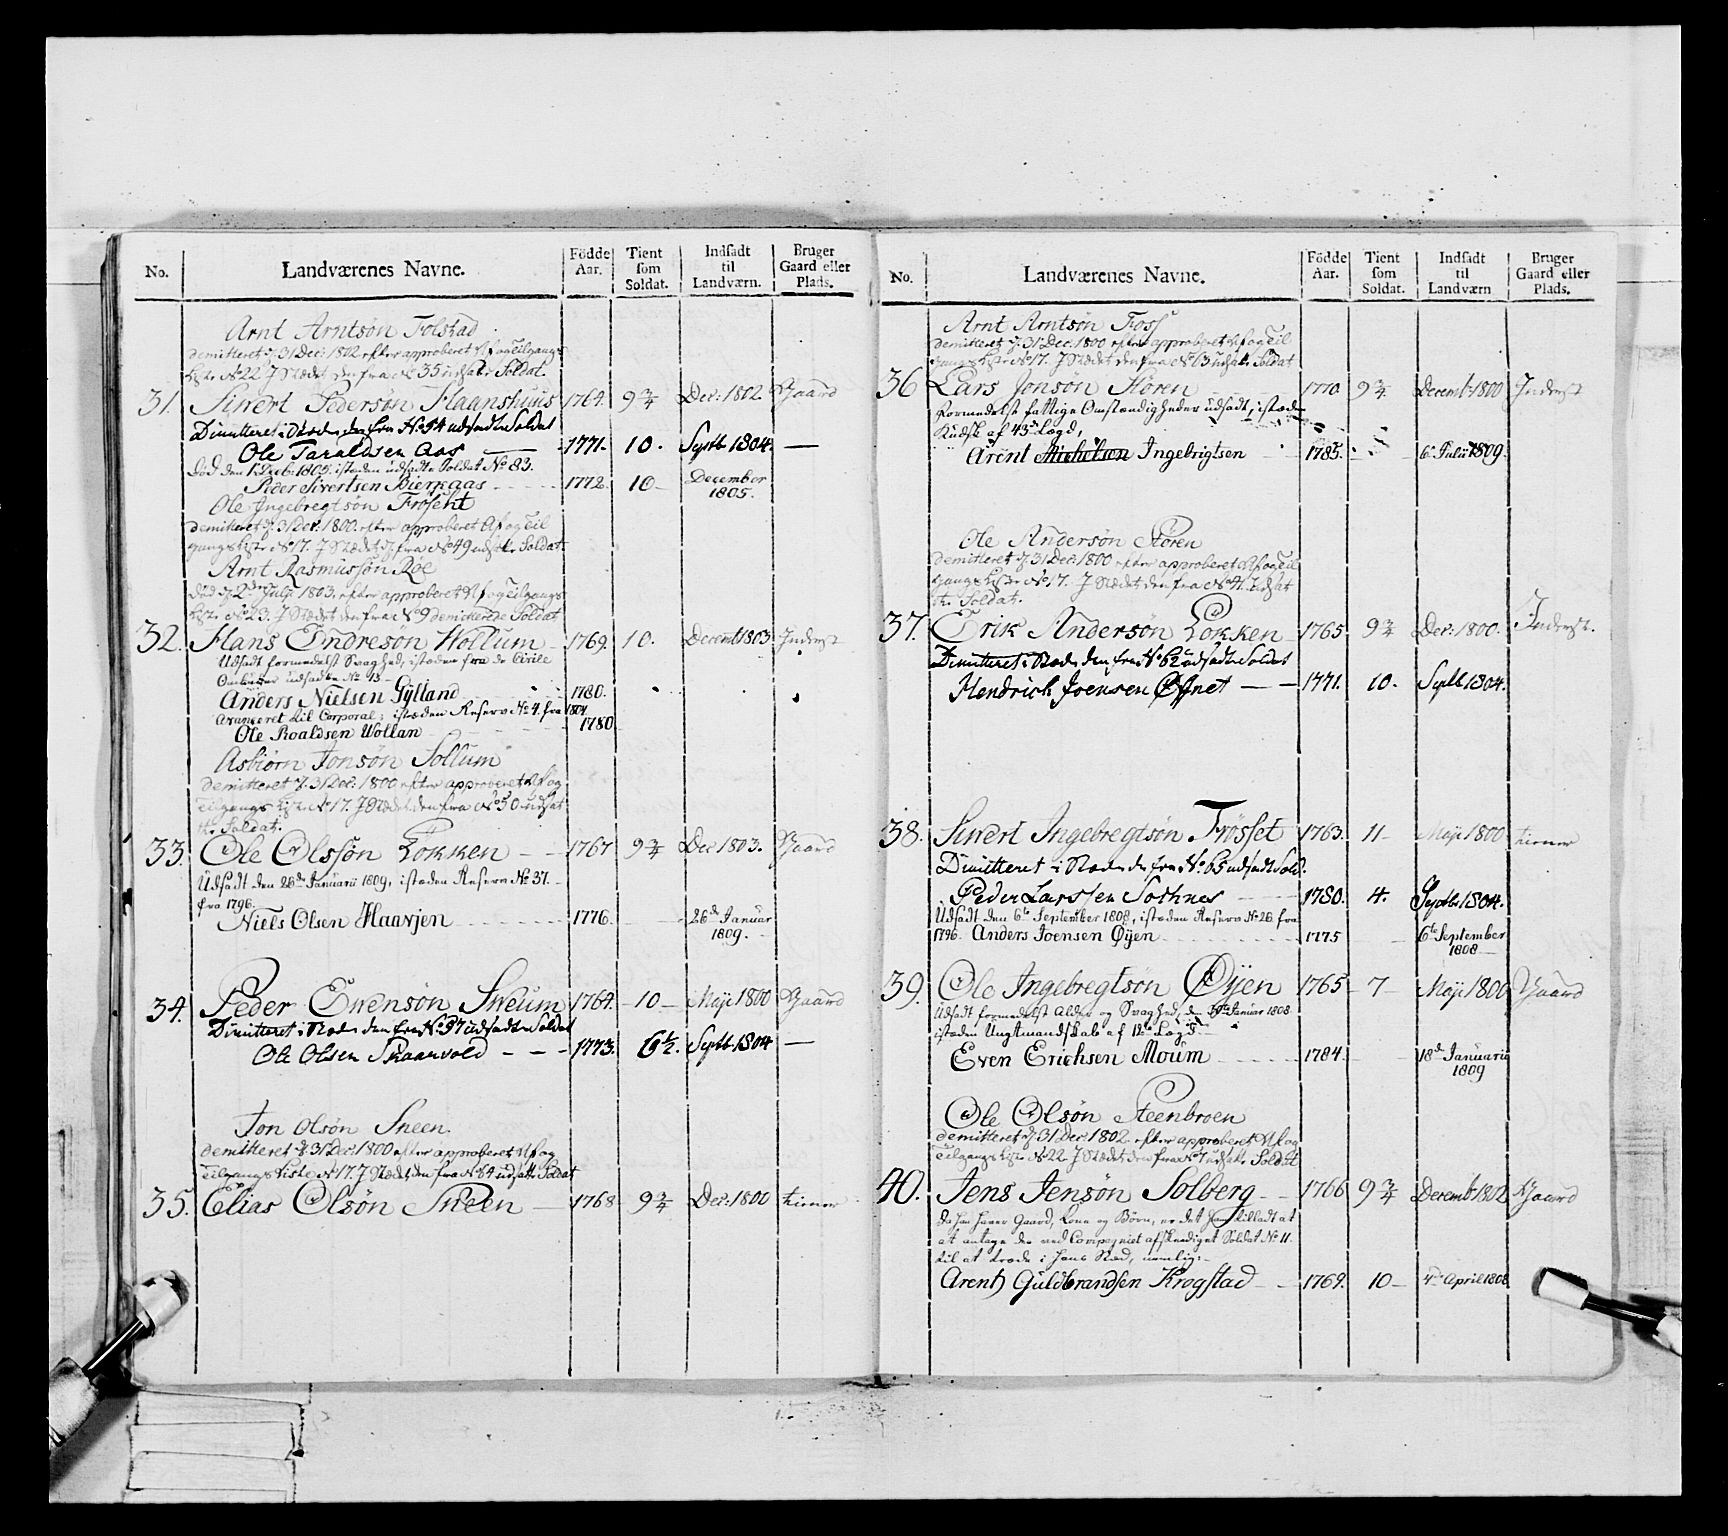 No. Landværenes Navne. Födde Aar. Tient som Soldat. Indsadt til Landværn. Bruger Gaard eller Plads.
Arnt Arntsøn Folstad
demitteret d. 31 Dec: 1802 efter approberet Af og Tilgangs
Liste No 22. I Stædet den fra No 35 udsatte Soldat.
31. Siwert Pedersøn Haanshuus 1764. 9 3/4 Dec: 1802. Gaard
Dimitteret i Stæden den fra No 54 udsadte Soldat
Ole Taraldsen Aas — 1771. 10. Septb 1804. —
død den 1 1805. istæden udsadte Soldat No 83.
Peder Sivertsen Bierkaas 1772. 10 — December
1805.
Ole Ingebregtsøn Frøseht
demitteret d. 31 Dec: 1800. efter approberet Af og Til
gangs Liste No 17. I Stædet d. fra No 49 udsatte Soldat.
Arnt Rasmussøn Roe
Død d. 2den July 1803. efter approberet Af og Tilgangs
Liste No 23. I Stædet den fra No 9 demitterede Soldat
32. Hans Endresøn Wollum 1769. 10. Decemb 1803 Inderst
Udsadt formedelst Svaghed, istæden fra de Civile
udsadte No 13 —
Anders Nielsen Gylland 1780.
Avanceret til Corporal; istæden Reserv No 4. fra 1804
Ole Roaldsen Wollan 1780
Asbiørn Jonsøn Sollum
demitteret d. 31 Dec: 1800 efter approberet Af og
Tilgangs Liste No 17. I Stædet den fra No 50 udsat
te Soldat.
33. Ole Olssøn Løkken 1767 9 3/4 Dec 1803. Gaard
Udsadt den 26de Januarii 1809, istæden Reserv No 37.
fra 1796.
Niels Olsen Haavjen 1776. 26de Januar
1809.
34. Peder Ewensøn Sneum 1764. 10 — Maji 1800 Gaard
Dimitteret i Stæden den fra No 57 udsadte Soldat
Ole Olsen Skaanvold 1773. 6 1/2. Septb. 1804 —
Jon Olsøn Sneen.
demitteret d. 31 Dec: 1800 efter approberet Af og
Tilgangs Liste No 17. I Stædet den fra No 64 udsatte Soldat
35. Elias Olsøn Sneen 1768 9 3/4 Dec: 1800 tiener
No. Landværenes Navne. Födde Aar. Tient som Soldat. Indsadt til Landværn Bruger Gaard eller Plads.
Arnt Arntsøn Foss
demitteret d. 31 Dec: 1800 efter approberet Af og Til
gangs Liste No 17. I Stædet den fra No 63 udsatte Soldat
36 Lars Jonsøn Støren 1770. 9 3/4 Decemb: 1800 Inderst
Formedelst fattige Omstændigheder udsadt, istæden
Kudsk af 43de Lægd,
Arent Michelsen Ingebrigtsen 1785. 6te Julii 1809.
Ole Andersøn Støren
demitteret d. 31 Dec: 1800 efter approberet Af og Til
gangs Liste No 17. I Stædet den fra No 41 udsat
te Soldat.
37. Erik Andersøn Løkken 1765. 9 3/4 Dec: 1800. Inderst.
Dimitteret i Stæden den fra No 62 udsadte Soldat
Hendrich Joensen Øffnet — 1771. 10. Septb 1804.
38. Siwert Ingebregtsøn Frøsset 1763. 11 — Maji 1800 tiener
Dimitteret i Stæden de fra No 65 udsadte Sold.
Peder Larssen Sothnes 1780. 4. Septbr 1804.
Udsadt den 6te September 1808, istæden Reserv No 28 fra
1796. Anders Joensen Øyen 1775 6te September
1808 —
39. Ole Ingebregtsøn Øÿen 1765 7 — Maji 1800 Gaard
Udsadt formedelst Alder og Svaghed, den Januar 1808
istæden Ungtmandskab af 12te Lægd
Even Erichsen Moum 1784. 18de Januarii
1809
Ole Olsøn Steenbroen
demitteret d. 31 Dec: 1802. efter approberet Af og
Tilgangs Liste No 22. I Stædet den fra No 7 udsatte Soldat
40. Jens Jensøn Solberg 1766 9 3/4 Decemb 1802 Gaard
Da han haver Gaard, Kone og Børn, er det ham tilladt at
at antage den ved Compagniet afskediget Soldat No 11.
til at træde i hans Stæd, nemlig:
Arent Guldbrandsen Krogstad 1769. 10 — 4de April 1808